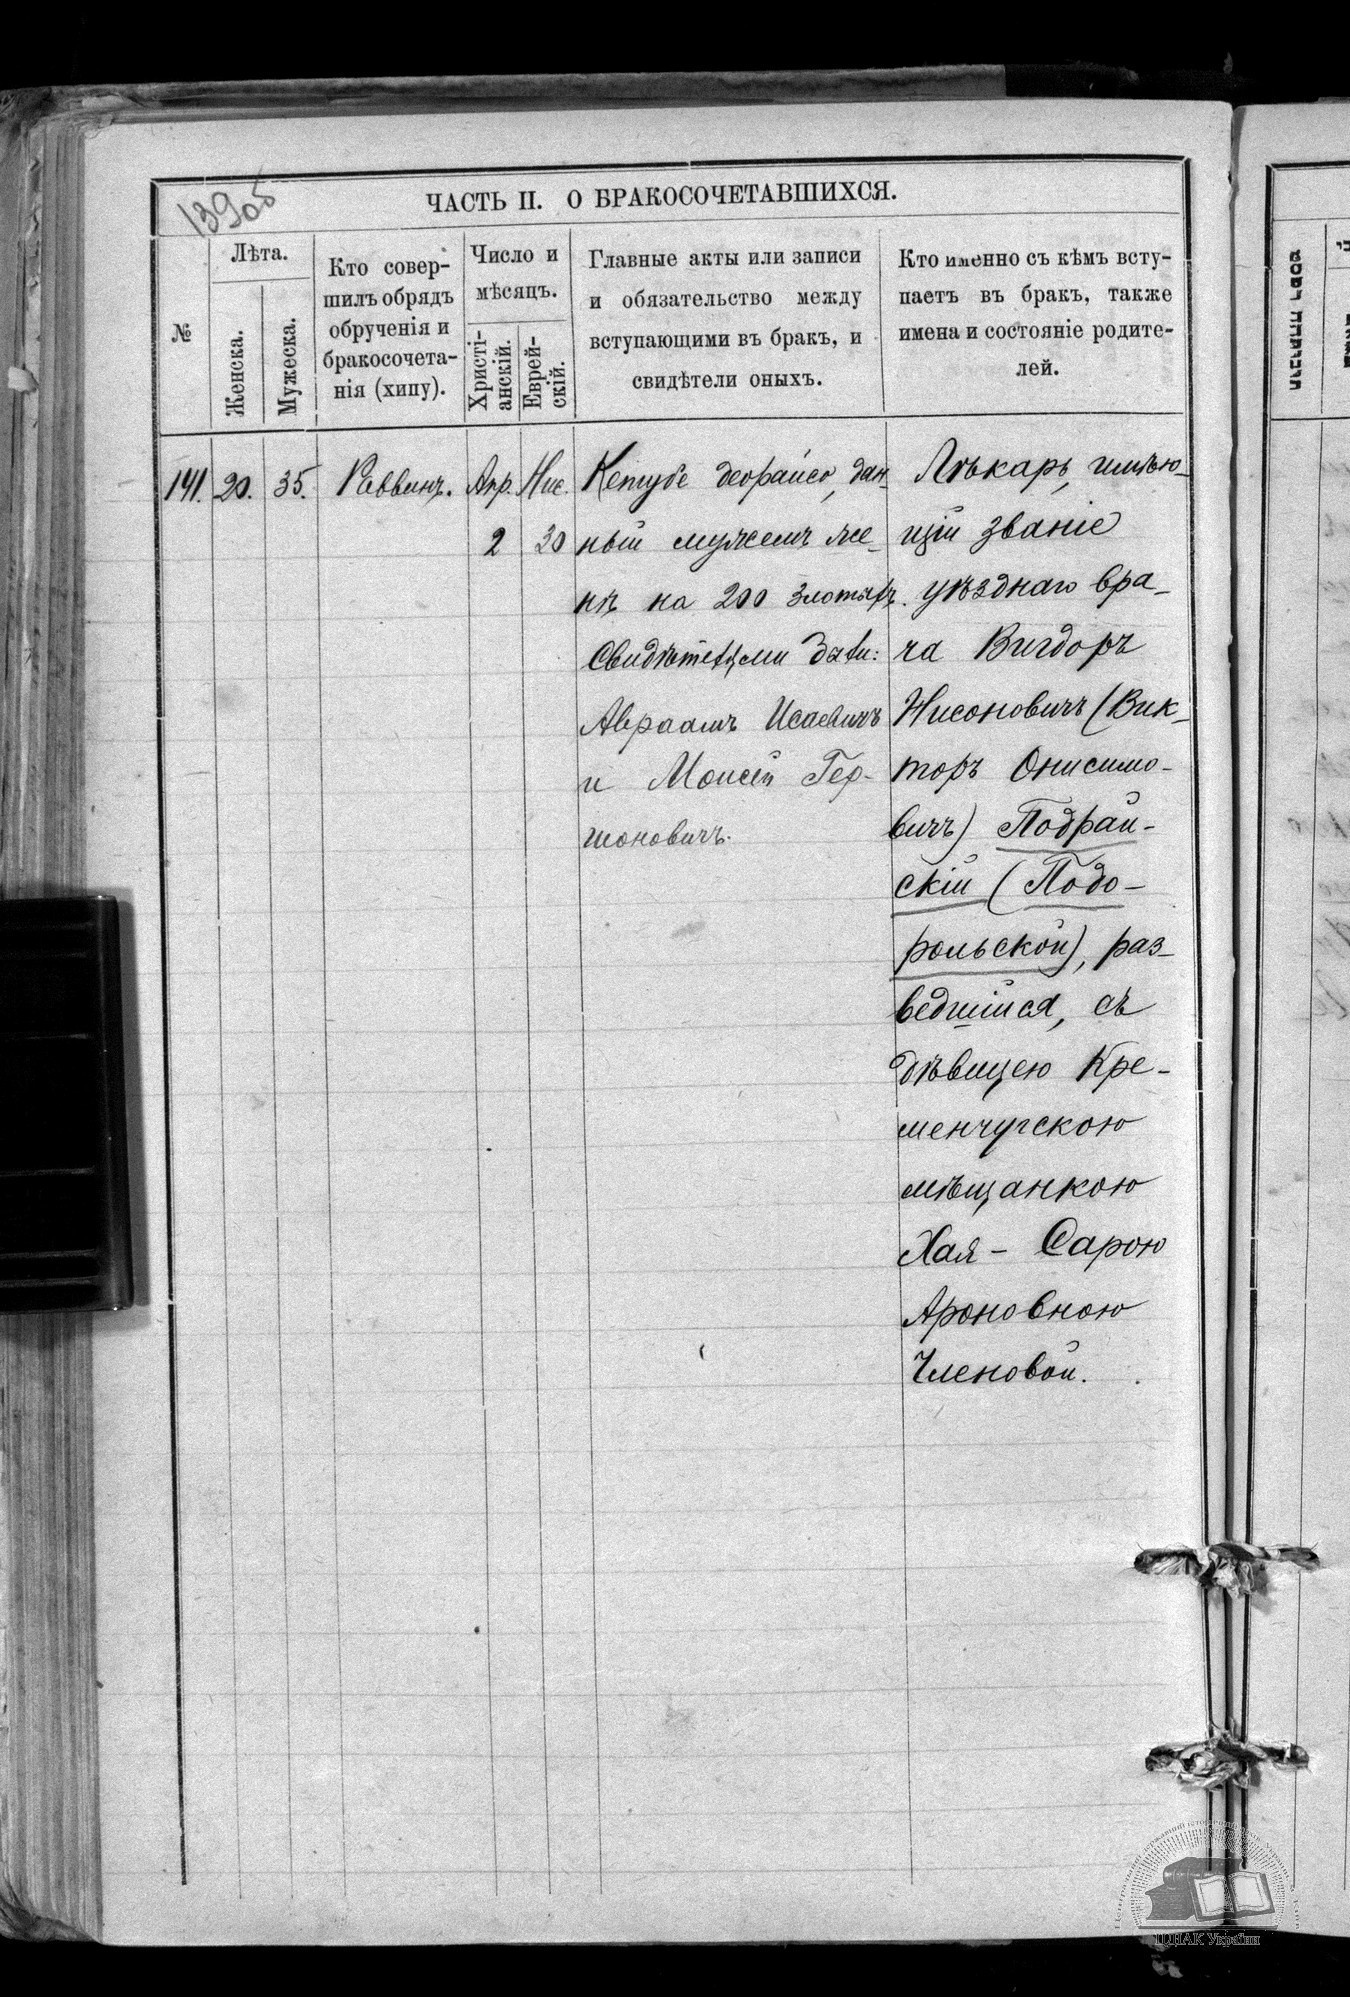 139об
ЧАСТЬ II. О БРАКОСОЧЕТАВШИХСЯ.
№
Лѣта.
Женска.
Мужеска.
Кто совер-
шилъ обрядъ
обрученія и
бракосочета-
нія (хипу).
Число и
мѣсяцъ.
Христі-
анскій.
Еврей-
скій.
Главные акты или записи
и обязательство между
вступающими въ бракъ, и
свидѣтели оныхъ.
Кто именно съ кѣмъ всту-
паетъ въ бракъ, также
имена и состояніе родите-
лей.
141. 20. 35. Раввинъ. Апр. Нис.
2 20
Кетубе деорайсо, дан-
ный мужемъ же-
нѣ на 200 злотыхъ.
Свидѣтелями были:
Авраамъ Исаевичъ
и Моисей Гер-
шоновичъ.
Лѣкарь, имѣю-
щій званіе
уѣзднаго вра-
ча Вигдоръ
Нисоновичъ (Вик-
торъ Онисимо-
вичъ) Подрай-
скій (Подо-
рольской), раз-
ведшійся, съ
дѣвицею Кре-
менчугскою
мѣщанкою
Хая - Сарою
Ароновною
Членовой.
ЦДІАК України